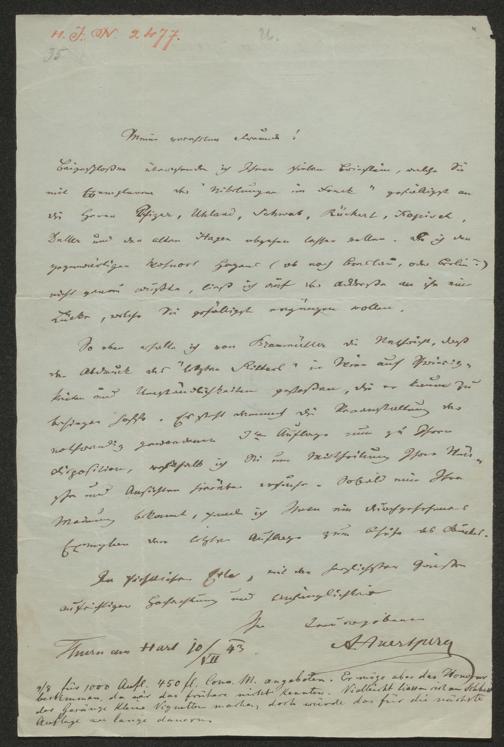 H. J. N. 2477.
35
Meine verehrten Freunde!
Beigeschlossen übersende ich Ihnen sieben Brieflein, welche Sie
mit Exemplaren des "Nibelungen im Frack" gefälligst an
die Herren Pfizer, Uhland, Schwab, Rückert, Kopisch,
und den alten Hagen abgehen lassen wollen. Da ich den
gegenwärtigen Wohnort Hagens (ob noch Breslau, oder Berlin?)
nicht genau wußte, ließ ich auf der Addresse an ihn eine
Lücke, welche Sie gefälligst ergänzen wollen.
So eben erhalte ich von die Nachricht, daß
der Abdruck des "letzten Ritters" in Wien auf Schwierig-
keiten und Umständlichkeiten gestoßen, die er kaum zu
besiegen hoffe. Es steht demnach die Veranstaltung der
nothwendig gewordenen Auflage nun zu Ihrer
Disposition, weßhalb ich Sie um Mittheilung Ihrer Wün-
sche und Ansichten hierüber ersuche. Sobald mir Ihre
Meinung bekannt, sende ich Ihnen ein durchgesehenes
Exemplar der letzten Auflage zum Behufe des Druckes.
In herzlichster Eile, mit den herzlichsten Grüßen
aufrichtiger Hochachtung und Anhänglichkeit
Ihr treuergebener
Thurn am Hart 10/VII 43 AAuersperg
für 1000 Aufl. 450 fl. Conv. M. angeboten. Er möge aber das Honorar
bestimmen, da wir das frühere nicht kennten. Vielleicht liessen sich
das Gesänge kleine Vignetten machen, doch würde das für die nächste
Auflage zu lange dauern.